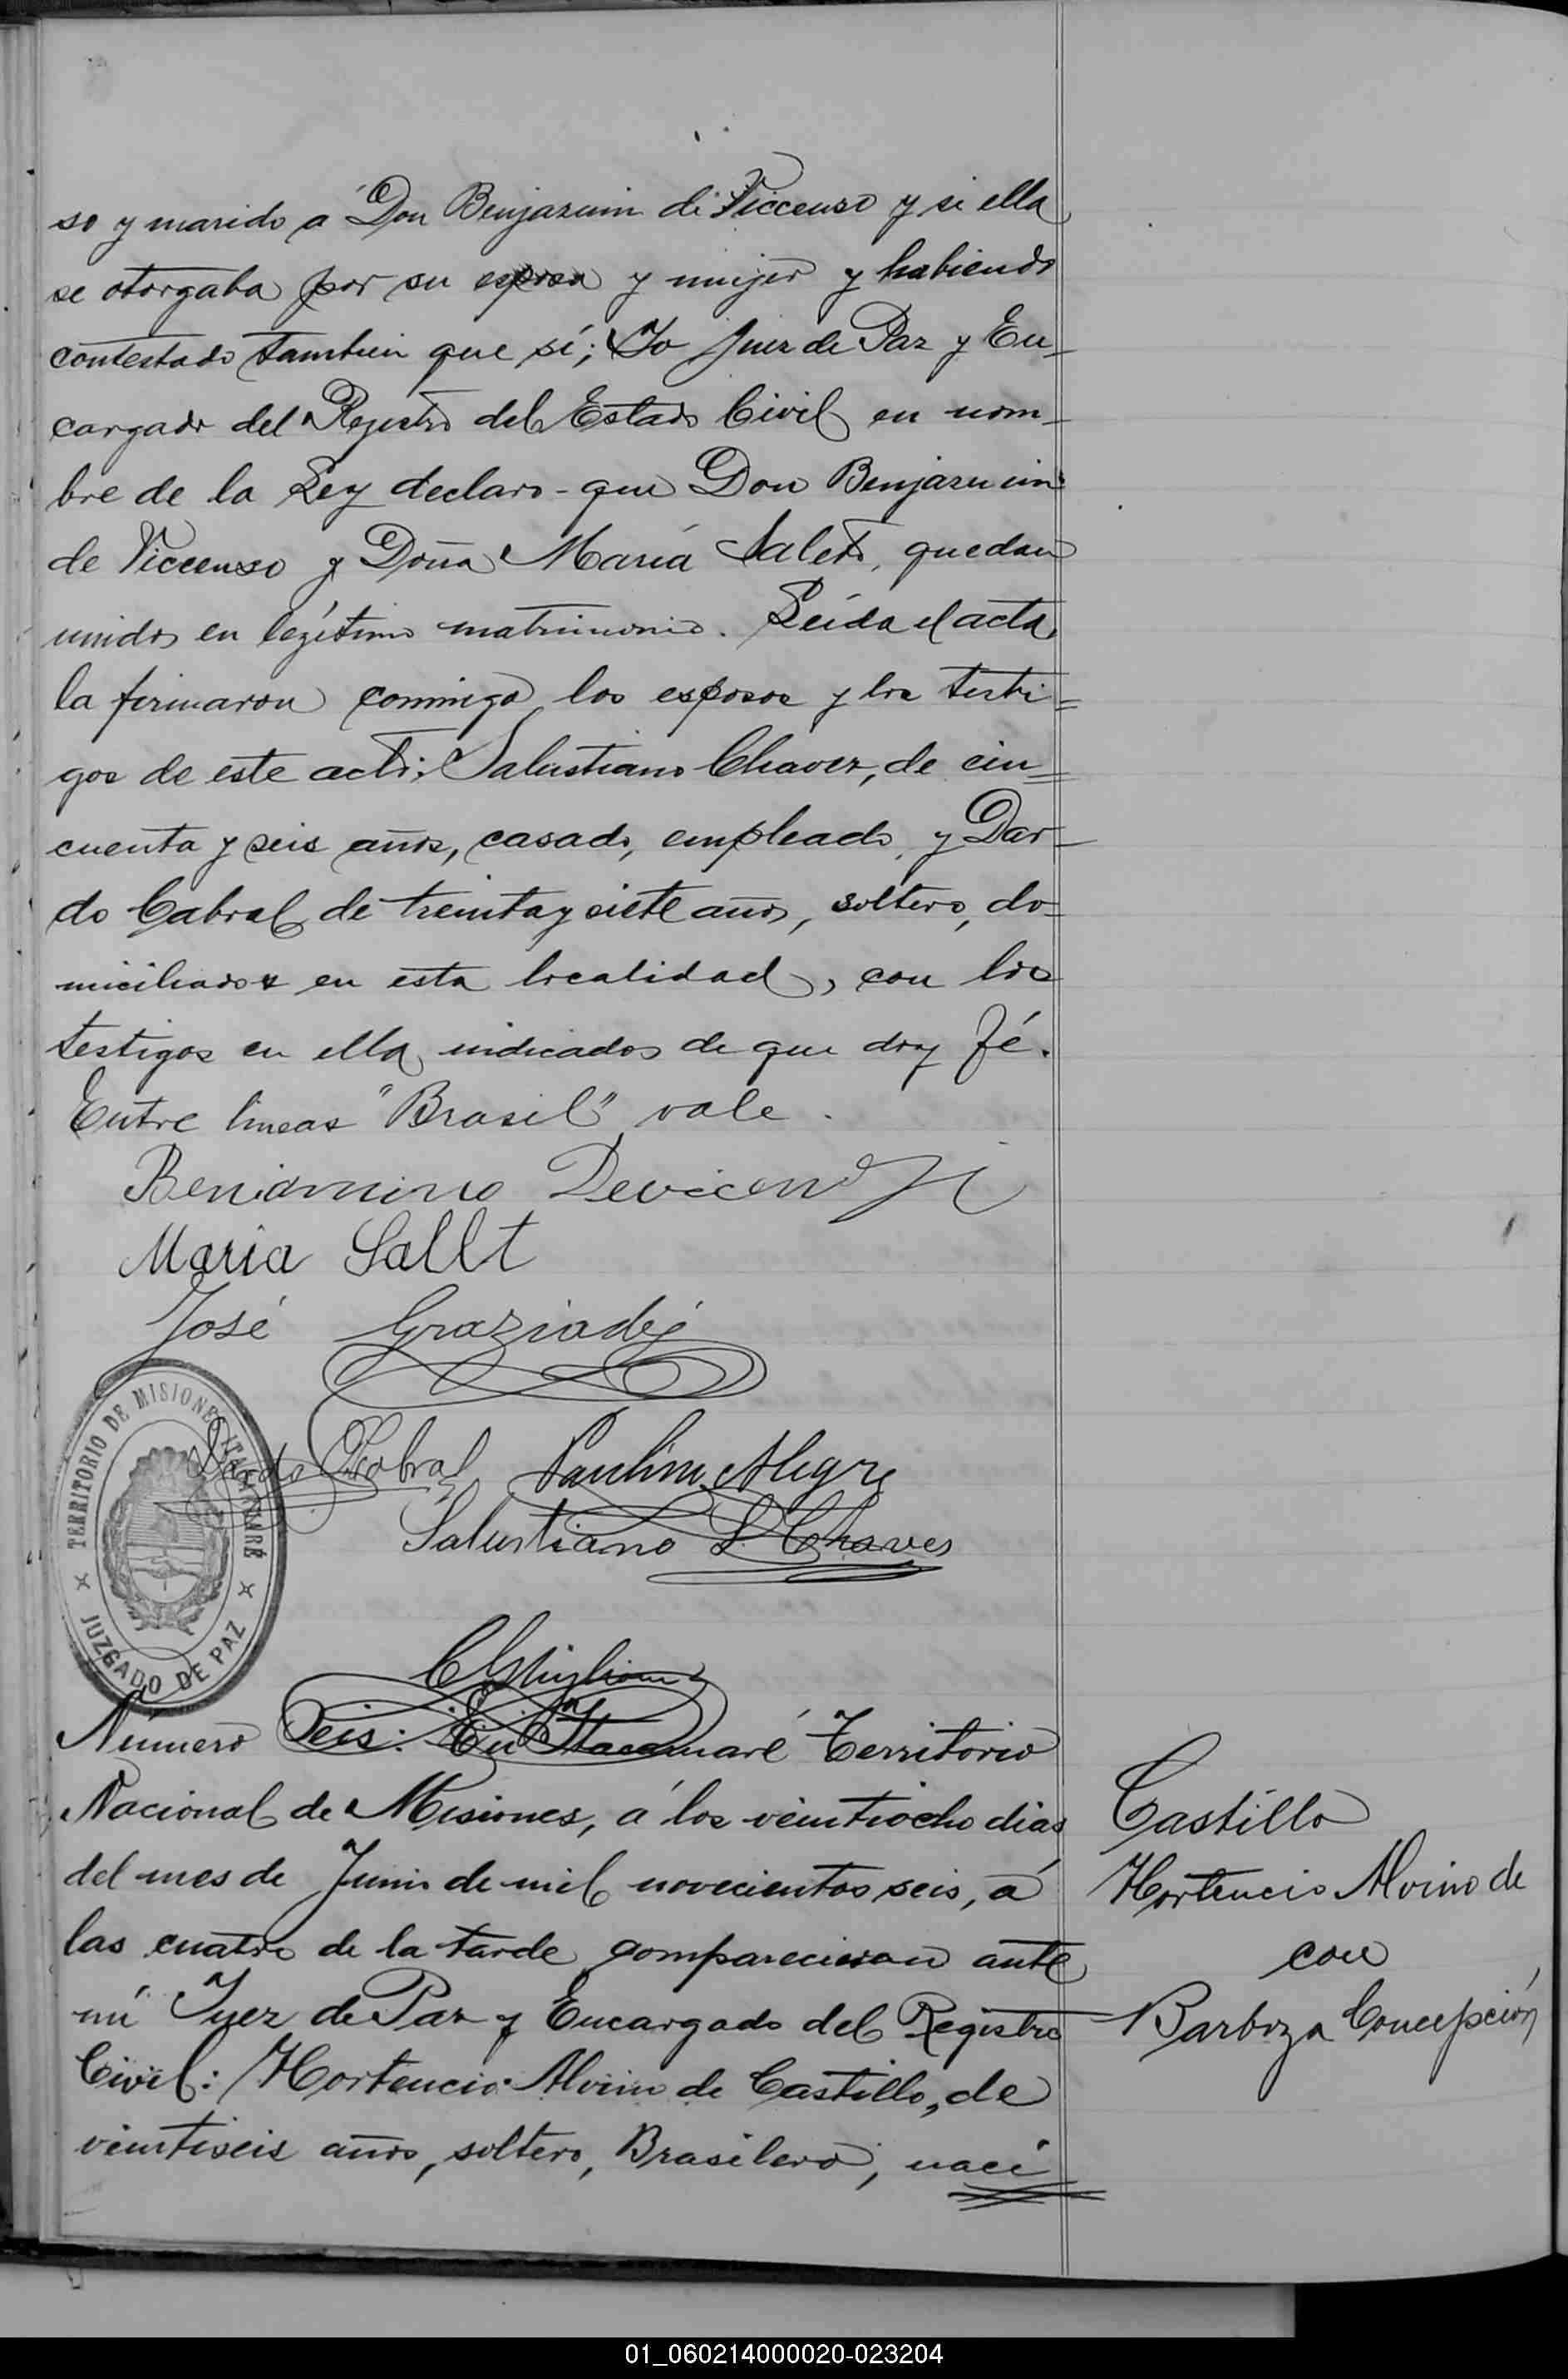 so y marido a Don Benjamin de Viccenso y si ella
se otorgaba por su esposa y mujer y habiendo
contestado tambien que sí; Yo Juez de Paz y En-
cargado del Registro del Estado Civil en nom-
bre de la Ley declaro que Don Benjamin
de Viccenso y Doña María Saleto, quedan
unidos en legítimo matrimonio. Leída el acta,
la firmaron conmigo los esposos y los testi=
gos de este acto: Salustiano Chavez, de cin=
cuenta y seis años, casado, empleado, y Dar-
do Cabral, de treinta y siete años, soltero, do-
miciliados en esta localidad, con los
testigos en ella indicados de que doy fé.
Entre lineas "Brasil" vale.
Beniamino
Maria Sallt
José Graziadéi
TERRITORIO DE MISIONES ITACARUARÉ
JUZGADO DE PAZ
Dardo Cabral Paulino Alegre
Salustiano L. Chaves
Número Seis: En Itacaruaré Territorio
Nacional de Misiones, á los veintiocho dias
del mes de Junio de mil novecientos seis, á
las cuatro de la tarde comparecieron ante
mí Juez de Paz y Encargado del Registro
Civil: Hortencio Alvino de Castillo, de
veintiseis años, soltero, Brasilero, naci
Castillo
Hortencio Alvino de
con
Barboza Concepción
01_060214000020-023204